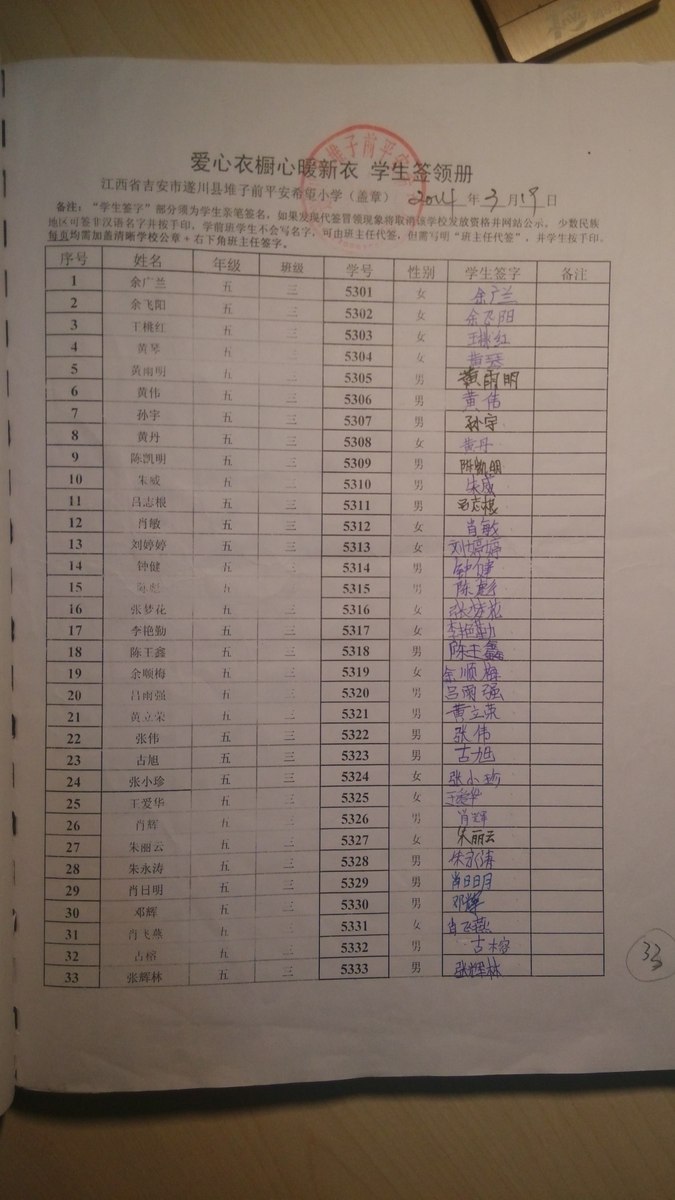 爱心衣橱心暖新衣 学生签领册
江西省吉安市遂川县堆子前平安希望小学（盖章） 2014 年 3 月 19 日
备注：“学生签字”部分须为学生亲笔签名，如果发现代签冒领现象将取消该学校发放资格并网站公示，少数民族
地区可签非汉语名字并按手印，学前班学生不会写名字，可由班主任代签，但需写明“班主任代签”，并学生按手印，
每页均需加盖清晰学校公章 + 右下角班主任签字。
堆子前平安
序号 姓名 年级 班级 学号 性别 学生签字 备注
1 余广兰 五 三 5301 女 余广兰
2 余飞阳 五 三 5302 女 余飞阳
3 王桃红 五 三 5303 女 王桃红
4 黄琴 五 三 5304 女 黄琴
5 黄雨明 五 三 5305 男 黄雨明
6 黄伟 五 三 5306 男 黄伟
7 孙宇 五 三 5307 男 孙宇
8 黄丹 五 三 5308 女 黄丹
9 陈凯明 五 三 5309 男 陈凯明
10 朱威 五 三 5310 男 朱威
11 吕志根 五 三 5311 男 吕志根
12 肖敏 五 三 5312 女 肖敏
13 刘婷婷 五 三 5313 女 刘婷婷
14 钟健 五 三 5314 男 钟健
15 陈彪 五 5315 男 陈
16 张梦花 五 三 5316 女 张梦花
17 李艳勤 五 三 5317 女 李艳勤
18 陈王鑫 五 三 5318 男 陈王鑫
19 余顺梅 五 三 5319 女 余顺梅
20 吕雨强 五 三 5320 男 吕雨强
21 黄立荣 五 三 5321 男 黄立荣
22 张伟 五 三 5322 男 张伟
23 古旭 五 三 5323 男 古旭
24 张小珍 五 三 5324 女 张小珍
25 王爱华 五 三 5325 女 王爱华
26 肖辉 五 三 5326 男 肖辉
27 朱丽云 五 三 5327 女 朱丽云
28 朱永涛 五 三 5328 男 朱永涛
29 肖日明 五 三 5329 男 肖日明
30 邓辉 五 三 5330 男 邓辉
31 肖飞燕 五 三 5331 女 肖飞燕
32 古榕 五 三 5332 男 古榕
33 张辉林 五 三 5333 男 张辉林
33